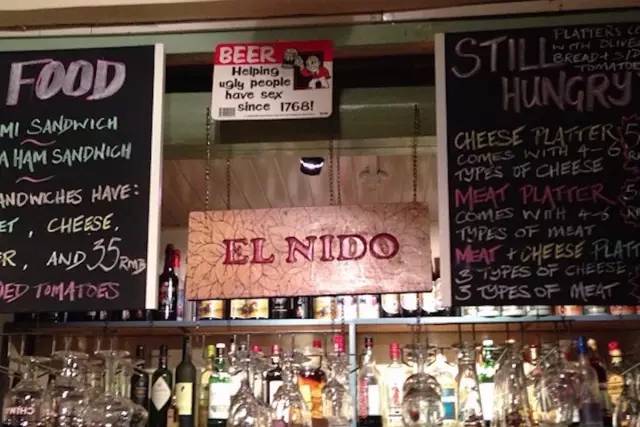 FOOD
MI SANDWICH
A HAM SANDWICH
ANDWICHES HAVE:
ET, CHEESE,
R, AND 35 RMB
DED TOMATOES
BEER
Helping
ugly people
have sex
since 1768!
EL NIDO
STILL
HUNGRY
PLATTERS CO
WITH OLIVE
BREAD + SA
TOMATO
CHEESE PLATTER
COMES WITH 4-6
TYPES OF CHEESE
MEAT PLATTER
COMES WITH 4-6
TYPES OF MEAT
MEAT + CHEESE PLATT
3 TYPES OF CHEESE
3 TYPES OF MEAT